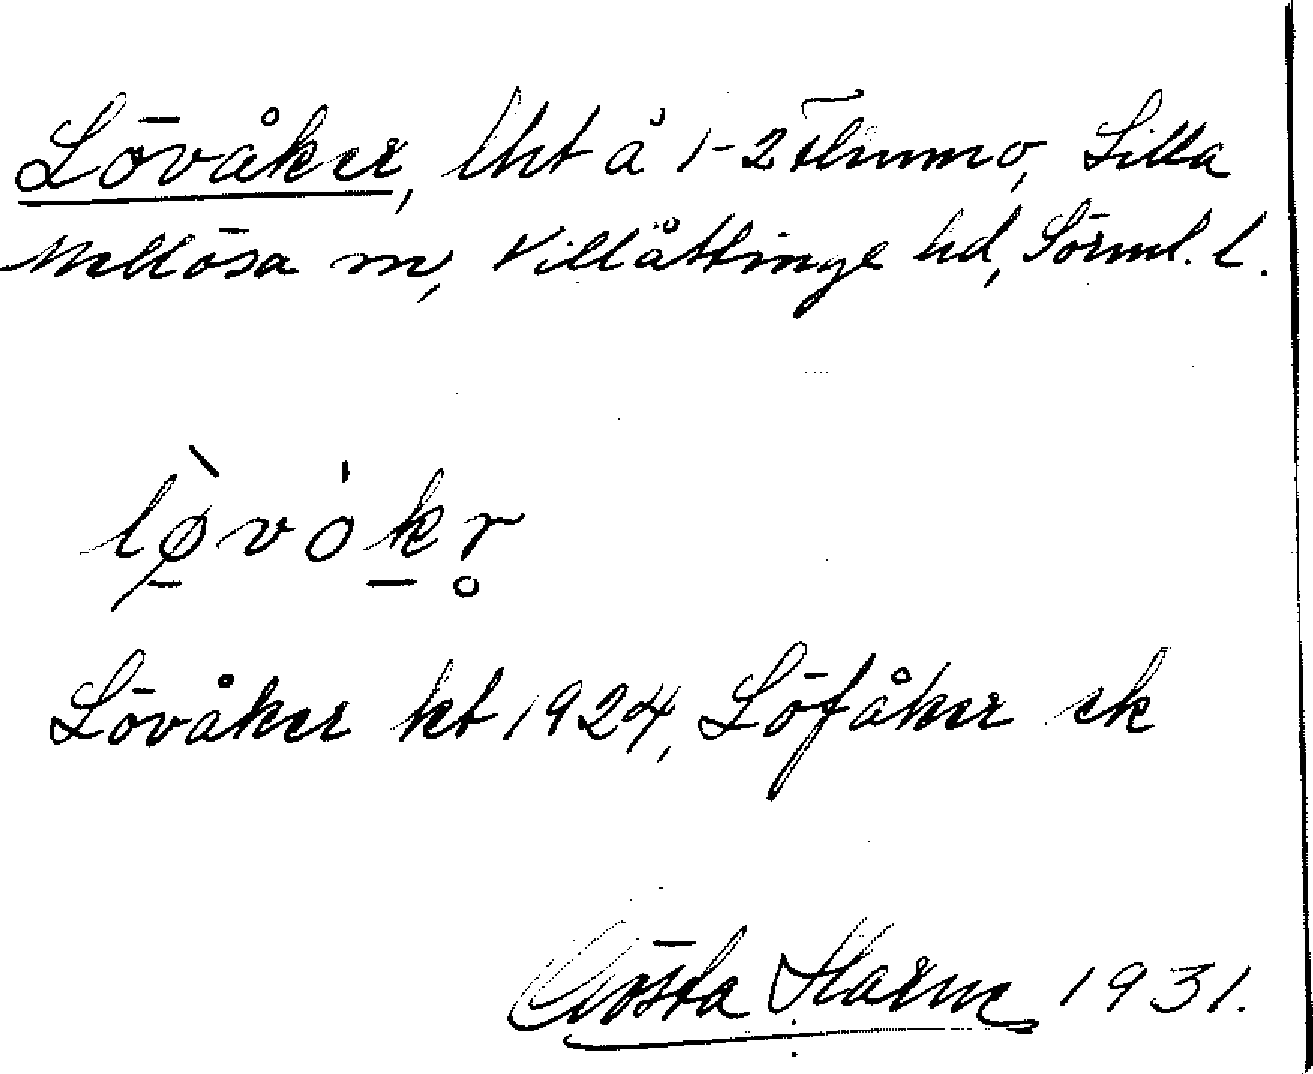 Lövåker, lht å 1-2 Flinmo, Lilla
Mellösa sn, Villåttinge hd, Sörml. l.
Lövåker kt 1924, Löfåker ek
Gösta 1931.